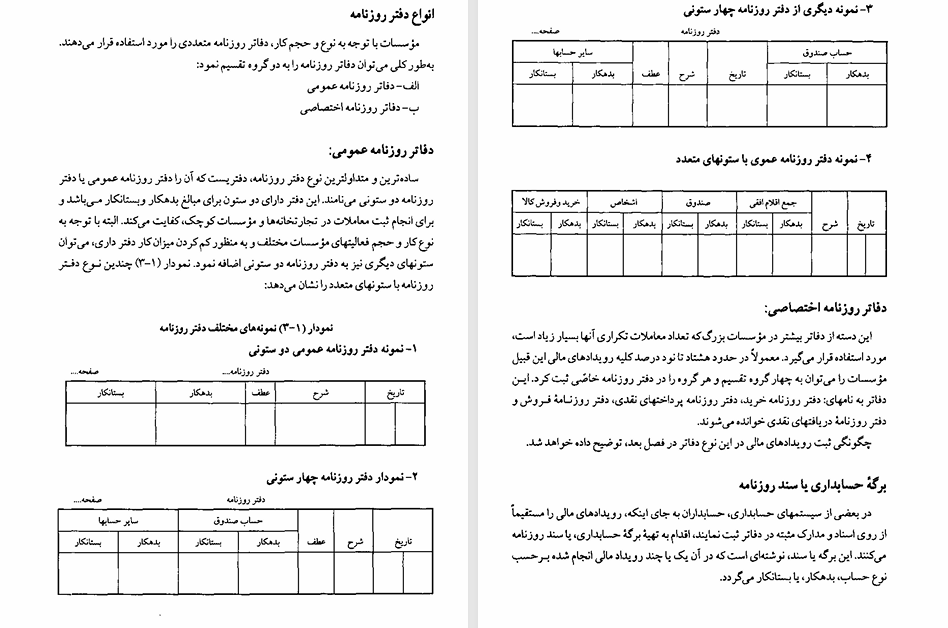 انواع دفتر روزنامه
مؤسسات با توجه به نوع و حجم کار، دفاتر روزنامه متعددی را مورد استفاده قرار می‌دهند.
به‌طور کلی می‌توان دفاتر روزنامه را به دو گروه تقسیم نمود:
الف- دفاتر روزنامه عمومی
ب- دفاتر روزنامه اختصاصی
دفاتر روزنامه عمومی:
ساده‌ترین و متداولترین نوع دفتر روزنامه، دفتریست که آن را دفتر روزنامه عمومی یا دفتر
روزنامه دو ستونی می‌نامند. این دفتر دارای دو ستون برای مبالغ بدهکار وبستانکار می‌باشد و
برای انجام ثبت معاملات در تجارتخانه‌ها و مؤسسات کوچک، کفایت می‌کند. البته با توجه به
نوع کار و حجم فعالیتهای مؤسسات مختلف و به منظور کم کردن میزان کار دفتر داری، می‌توان
ستونهای دیگری نیز به دفتر روزنامه دو ستونی اضافه نمود. نمودار (۱-۳) چندین نوع دفتر
روزنامه با ستونهای متعدد را نشان می‌دهد:
نمودار (۱-۳) نمونه‌های مختلف دفتر روزنامه
۱- نمونه دفتر روزنامه عمومی دو ستونی
دفتر روزنامه.... صفحه....
تاریخ شرح عطف بدهکار بستانکار
۲- نمودار دفتر روزنامه چهار ستونی
دفتر روزنامه صفحه....
حساب صندوق سایر حسابها
تاریخ شرح عطف بدهکار بستانکار بدهکار بستانکار
۳- نمونه دیگری از دفتر روزنامه چهار ستونی
دفتر روزنامه صفحه....
حساب صندوق سایر حسابها
بدهکار بستانکار تاریخ شرح عطف بدهکار بستانکار
۴- نمونه دفتر روزنامه عموی با ستونهای متعدد
جمع اقلام افقی صندوق اشخاص خرید وفروش کالا
تاریخ شرح بدهکار بستانکار بدهکار بستانکار بدهکار بستانکار بدهکار بستانکار
دفاتر روزنامه اختصاصی:
این دسته از دفاتر بیشتر در مؤسسات بزرگ که تعداد معاملات تکراری آنها بسیار زیاد است،
مورد استفاده قرار می‌گیرد. معمولاً در حدود هشتاد تا نود درصد کلیه رویدادهای مالی این قبیل
مؤسسات را می‌توان به چهار گروه تقسیم و هر گروه را در دفتر روزنامه خاصّی ثبت کرد. این
دفاتر به نامهای: دفتر روزنامه خرید، دفتر روزنامه پرداختهای نقدی، دفتر روزنامهٔ فروش و
دفتر روزنامهٔ دریافتهای نقدی خوانده می‌شوند.
چگونگی ثبت رویدادهای مالی در این نوع دفاتر در فصل بعد، توضیح داده خواهد شد.
برگهٔ حسابداری یا سند روزنامه
در بعضی از سیستمهای حسابداری، حسابداران به جای اینکه، رویدادهای مالی را مستقیماً
از روی اسناد و مدارک مثبته در دفاتر ثبت نمایند، اقدام به تهیهٔ برگهٔ حسابداری، یا سند روزنامه
می‌کنند. این برگه یا سند، نوشته‌ای است که در آن یک یا چند رویداد مالی انجام شده برحسب
نوع حساب، بدهکار، یا بستانکار می‌گردد.